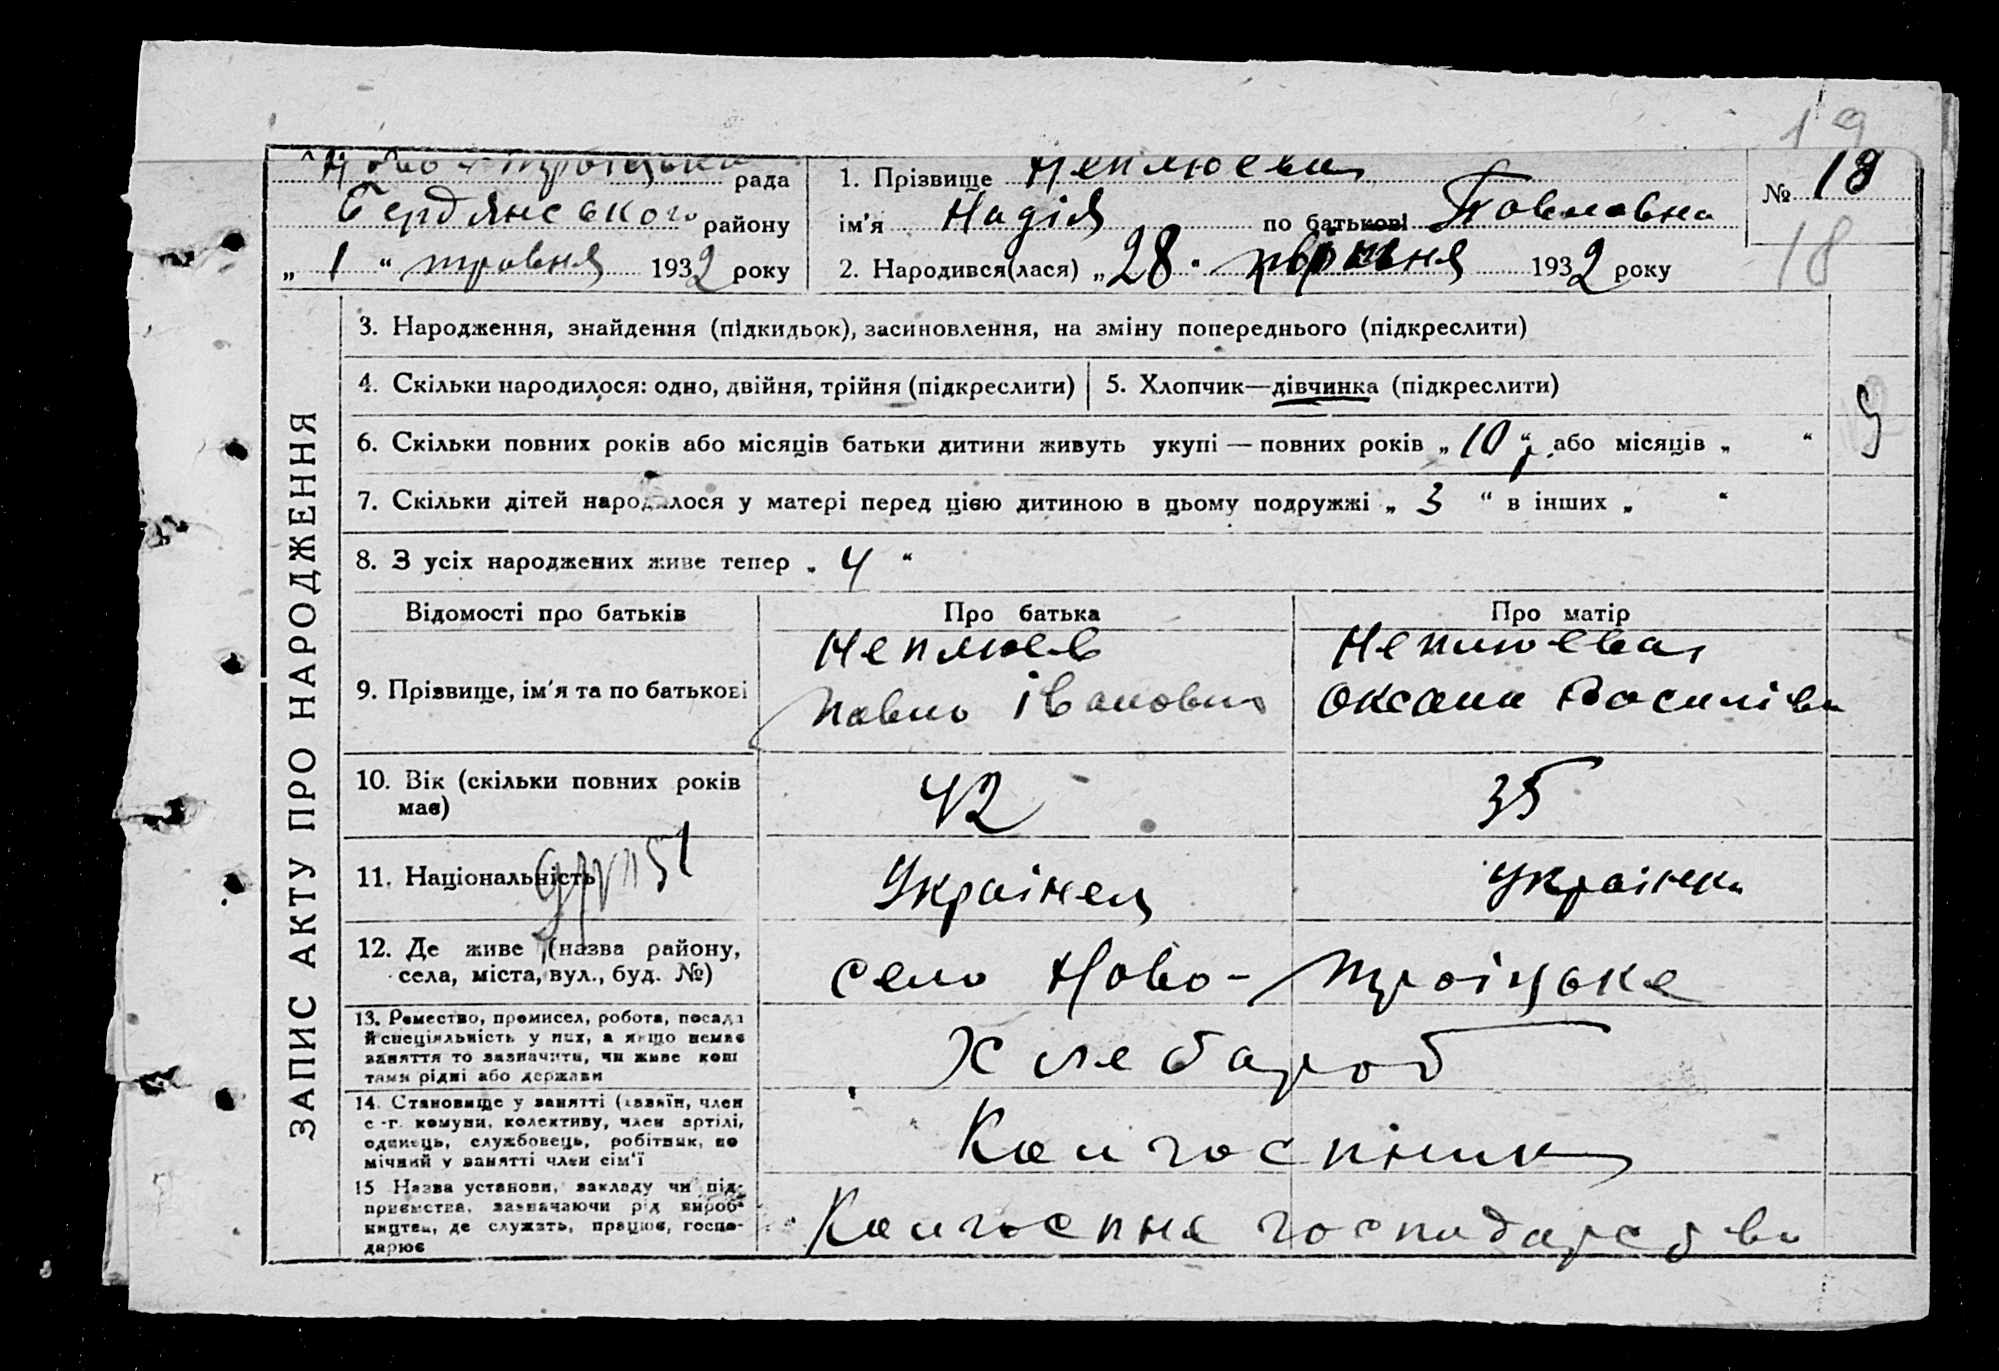 19
Ново-Троіцька рада
Бердянського району
„ 1 “ травня 1932 року
1. Прізвище Неплюева
ім'я Надія по батькові Павловна
2. Народився(лася) „ 28 “ 1932 року
№ 18
18
ЗАПИС АКТУ ПРО НАРОДЖЕННЯ
3. Народження, знайдення (підкидьок), засиновлення, на зміну попереднього (підкреслити)
4. Скільки народилося: одно, двійня, трійня (підкреслити)
5. Хлопчик—дівчинка (підкреслити)
6. Скільки повних років або місяців батьки дитини живуть укупі — повних років „ 10 “, або місяців „ “
7. Скільки дітей народилося у матері перед цією дитиною в цьому подружжі „ 3 “ в інших „ “
8. З усіх народжених живе тепер „ 4 “
Відомості про батьків Про батька Про матір
9. Прізвище, ім'я та по батькові
Неплюев
Павло Іванович
Неплюева
Оксана Василівн
10. Вік (скільки повних років
має)
42
35
11. Національність
Украінец
Украінка
12. Де живе (назва району,
села, міста, вул., буд. №)
село Ново-Троіцьке
13. Ремество, промисел, робота, посада
й спеціяльність у них, а якщо немає
заняття то зазначити, чи живе кош
тами рідні або держави
Хлебароб
14. Становище у занятті (хазяїн, член
с-г. комуни, колективу, член артілі,
одинець, службовець, робітник, по
мічний у занятті член сім'ї
Калгоспник
15 Назва установи, закладу чи під-
приємства, зазначаючи рід вироб-
ництва, де служать, працює, госпо-
дарює
Калгоспне господарство